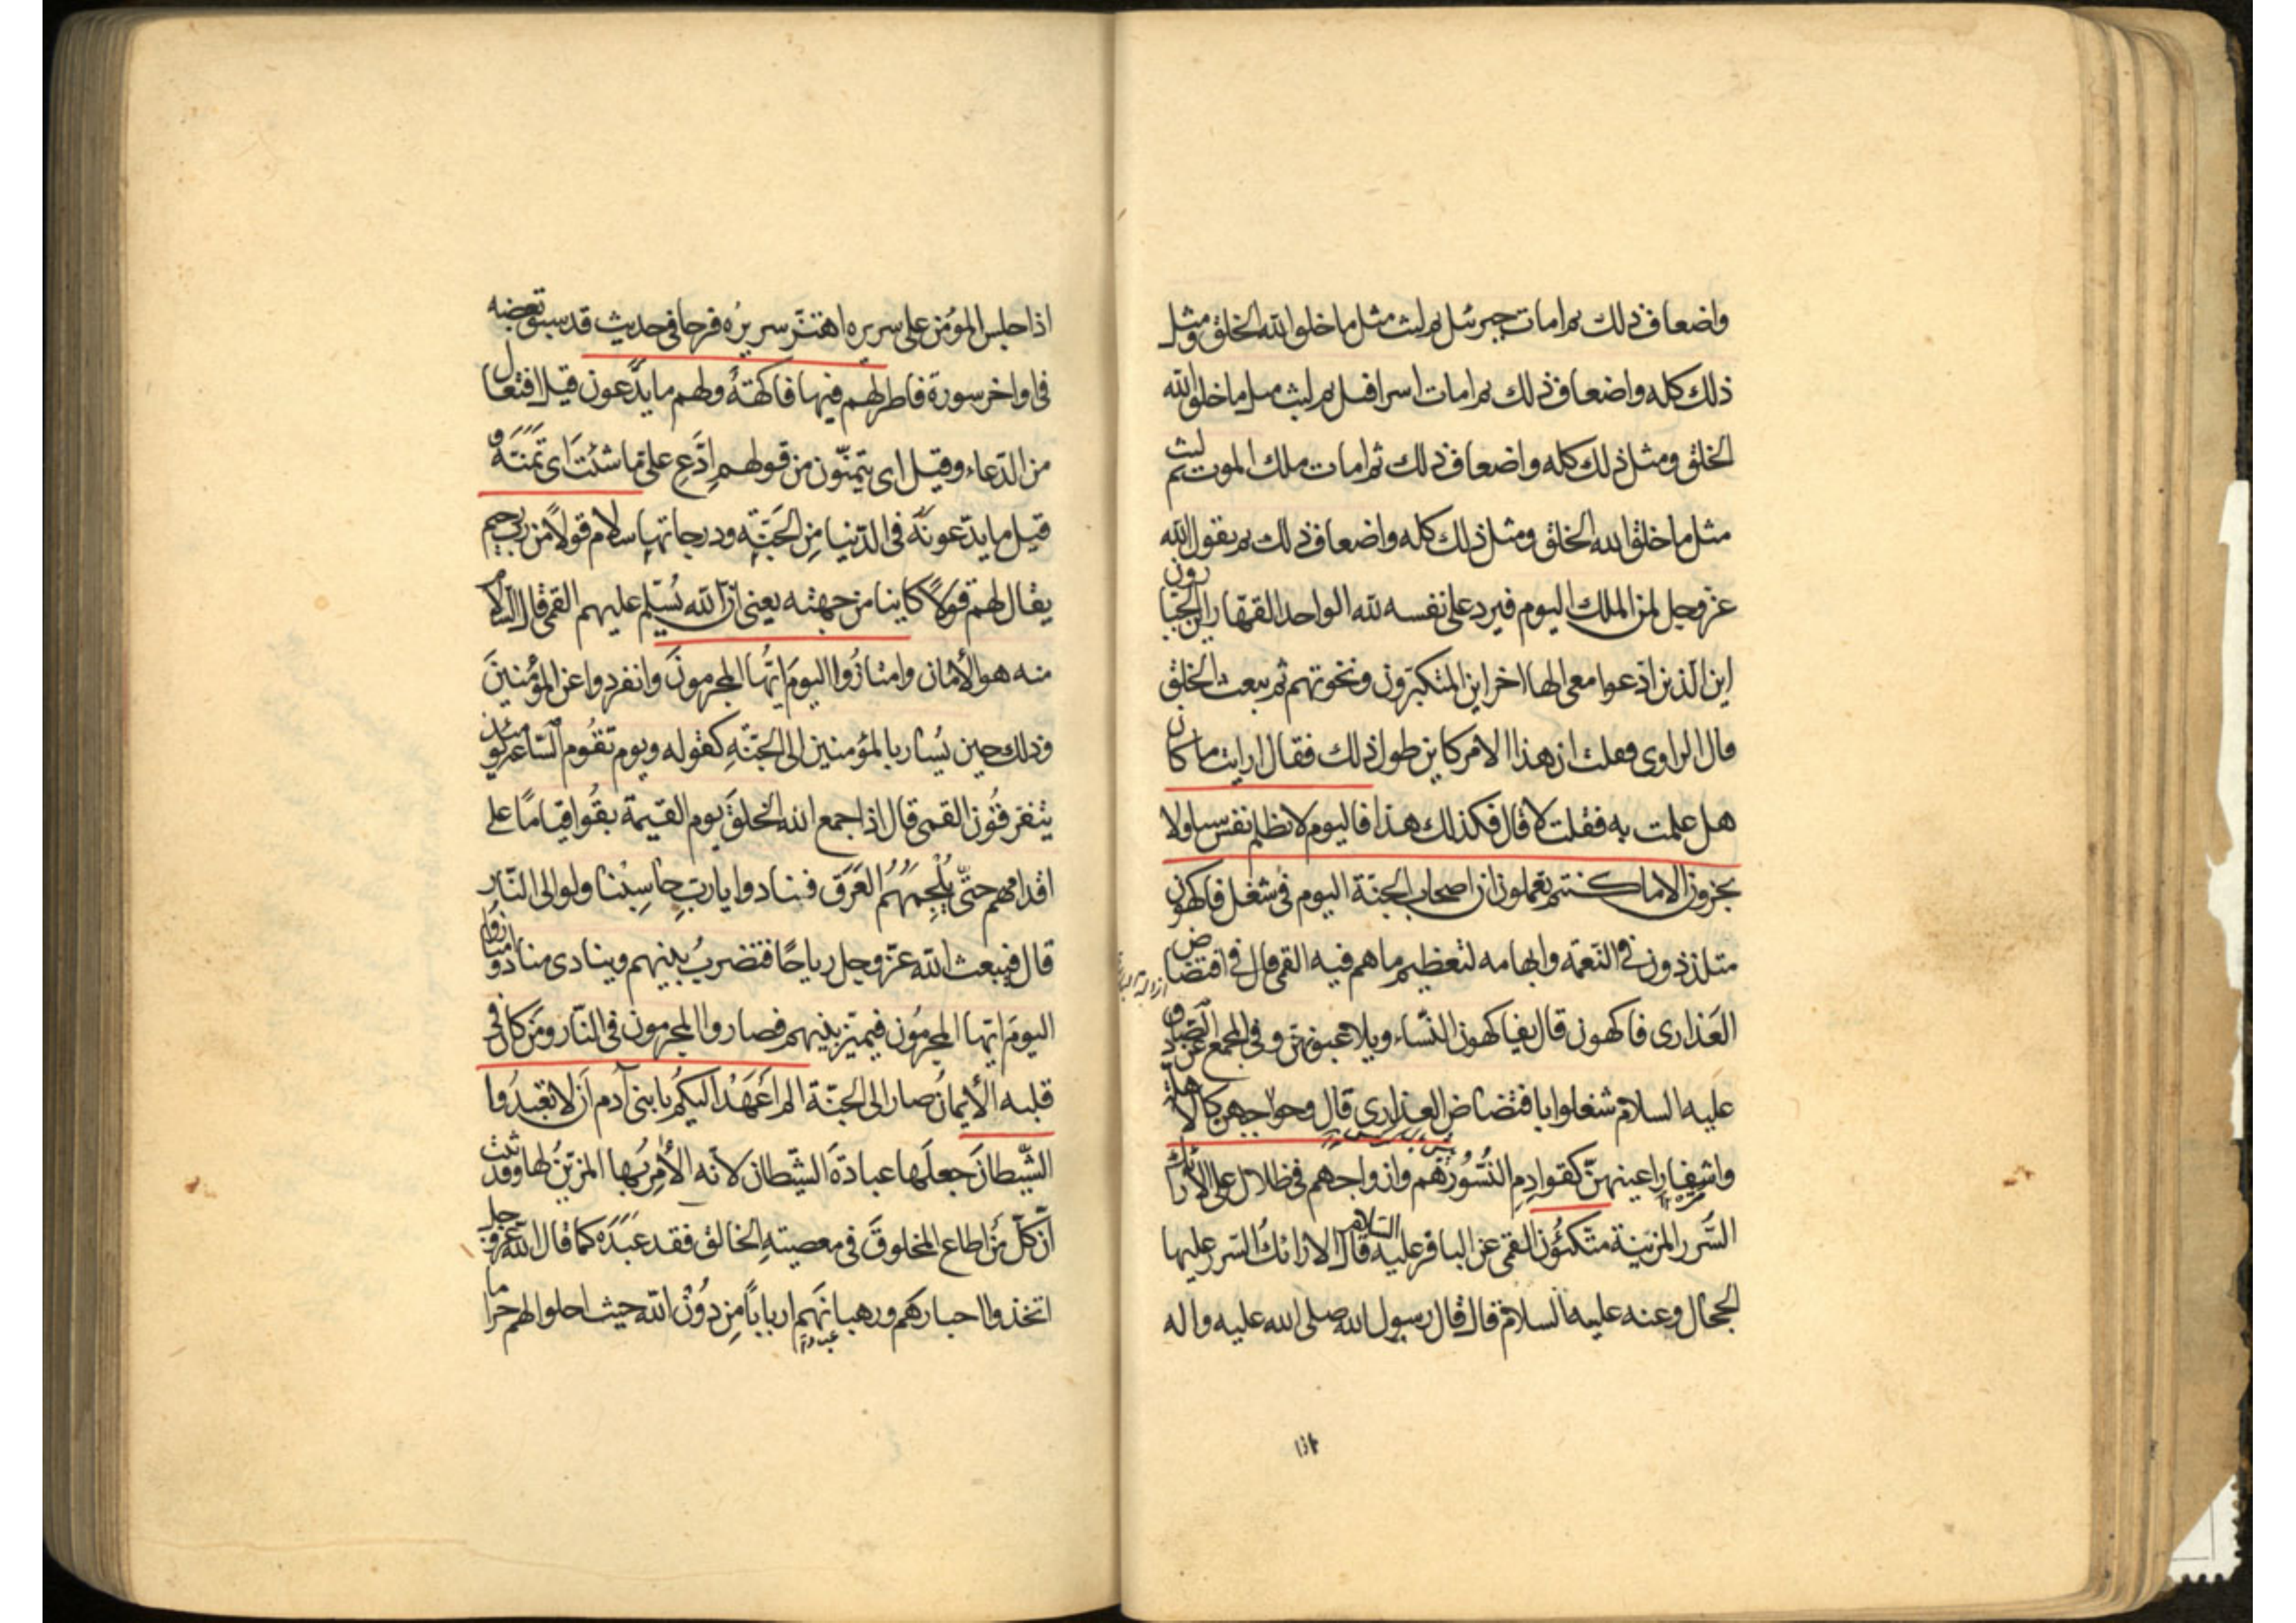 واضعاف ذلك ثم امات جبرئيل ثم لبث مثل ما خلق الله الخلق ومثل
ذلك كله واضعاف ذلك ثم امات اسرافيل ثم لبث مثل ما خلق الله
الخلق ومثل ذلك كله واضعاف ذلك ثم امات ملك الموت ثم لبث
مثل ما خلق الله الخلق ومثل ذلك كله واضعاف ذلك ثم يقول الله
عز وجل لمن الملك اليوم فيرد على نفسه لله الواحد القهار اين الجبارون
اين الذين ادعوا معى الها اخر اين المتكبرون ونخوتهم ثم يبعث الخلق
قال الراوى فقلت ان هذا الامر كاين طول ذلك فقال ارايت ما كان
هل علمت به فقلت لا قال فكذلك هذا فاليوم لا تظلم نفس شيئا ولا
تجزون الا ما كنتم تعملون ان اصحاب الجنة اليوم فى شغل فاكهون
متلذذون فى النعمة وابهامه لتعظيم ما هم فيه القمى قال فى افتضاض
العذارى فاكهون قال يفاكهون النساء ويلاعبونهن وفى المجمع عن الصادق
عليه السلام شغلوا بافتضاض العذارى قال وحواجبهن كالاهلة
واشفار اعينهن كقوادم النسور هم وازواجهم فى ظلال على الارائك
السرر المزينة متكئون القمى عن الباقر عليه السلام قال الارائك السرر عليها
الحجال وعنه عليه السلام قال قال رسول الله صلى الله عليه واله
اذا
اذا جلس المؤمن على سريره اهتز سريره فرحا فى حديث قد سبق بعضه
فى اواخر سورة فاطر لهم فيها فاكهة ولهم ما يدعون قيل افتعال
من الدعاء وقيل اى يتمنون من قولهم ادع على ما شئت اى تمنه و
قيل ما يدعونه فى الدنيا من الجنة ودرجاتها سلام قولا من رب رحيم
يقال لهم قولا كاينا من جهته يعنى ان الله يسلم عليهم القمى قال السلام
منه هو الامان وامتازوا اليوم ايها المجرمون وانفردوا عن المؤمنين
وذلك حين يسار بالمؤمنين الى الجنة كقوله ويوم تقوم الساعة يومئذ
يتفرقون القمى قال اذا جمع الله الخلق يوم القيمة بقوا قياما على
اقدامهم حتى يلجمهم العرق فينادوا يا رب حاسبنا ولو الى النار
قال فيبعث الله عز وجل رياحا فتضرب بينهم وينادى مناد وامتازوا
اليوم ايها المجرمون فيميز بينهم فصاروا المجرمون فى النار ومن كان فى
قلبه الايمان صار الى الجنة الم اعهد اليكم يا بنى آدم ان لا تعبدوا
الشيطان جعلها عبادة الشيطان لانه الامر بها المزين لها وقد ثبت
ان كل من اطاع المخلوق فى معصيته الخالق فقد عبده كما قال الله عز وجل
اتخذوا احبارهم ورهبانهم اربابا من دون الله حيث احلوا لهم حراما